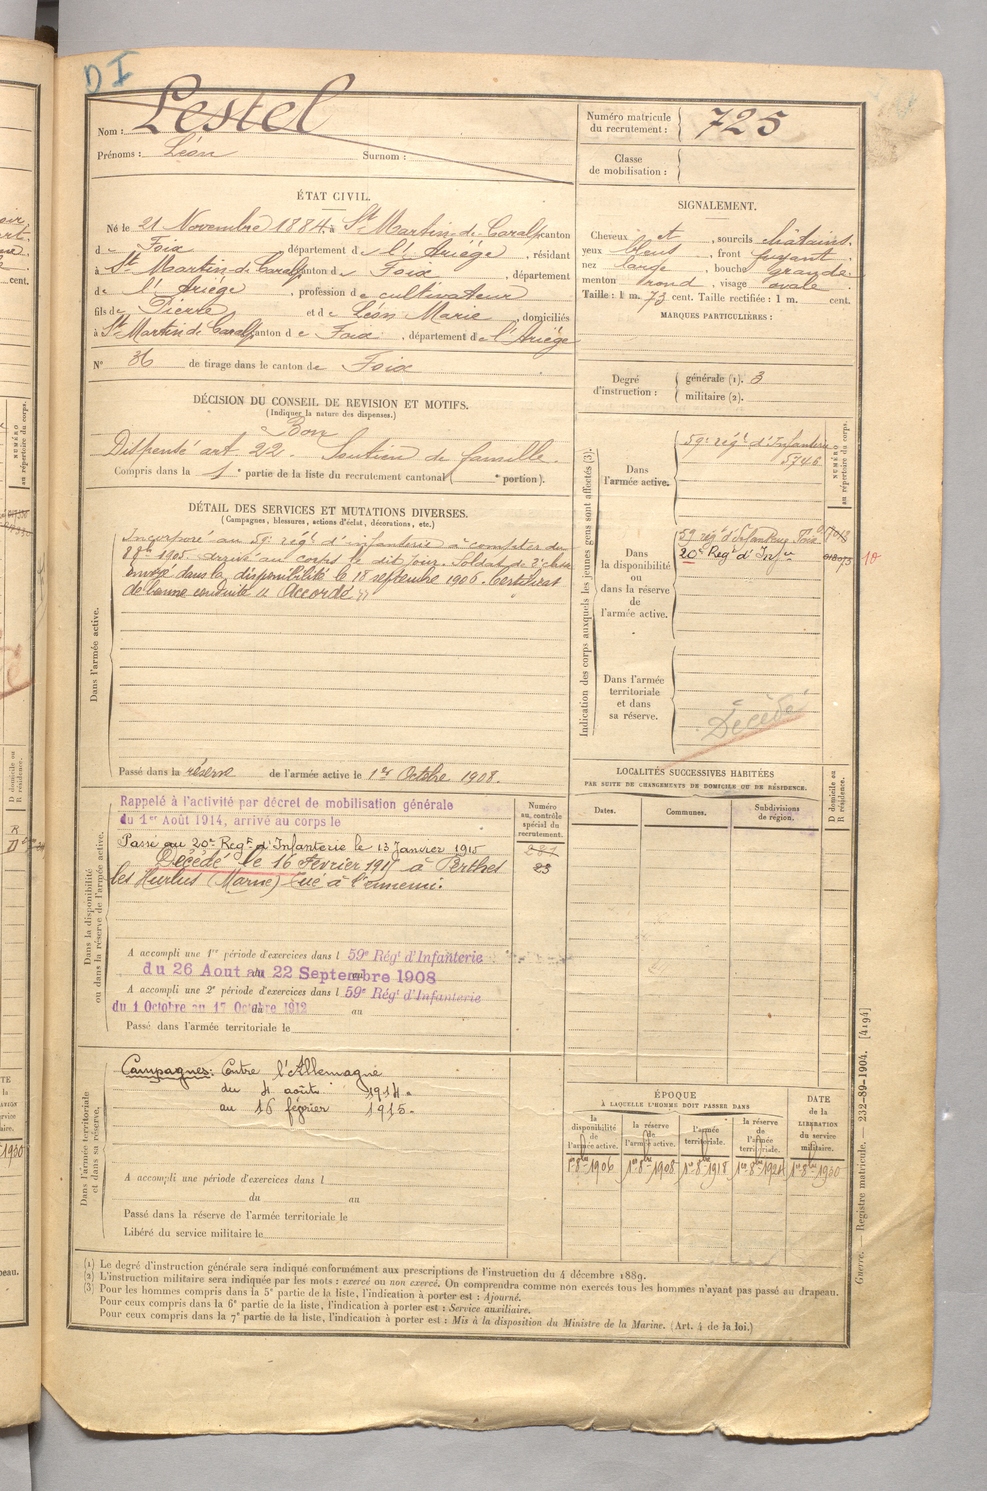 D I
Nom : Lestel
Prénoms : Léon Surnom :
Numéro matricule du recrutement : 725
Classe de mobilisation :
ÉTAT CIVIL.
Né le 21 Novembre 1884, à St Martin-de-Caralp canton
de Foix, département de l'Ariège, résidant
à St Martin-de-Caralp canton de Foix, département
de l'Ariège, profession de cultivateur
fils de Pierre et de Léon Marie, domiciliés
à St Martin de Caralp, canton de Foix, département de l'Ariège
N° 36 de tirage dans le canton de Foix
SIGNALEMENT.
Cheveux et, sourcils châtains.
yeux bleus, front fuyant
nez large, bouche grande
menton rond, visage ovale
Taille : 1 m. 73 cent. Taille rectifiée : 1 m. cent.
MARQUES PARTICULIÈRES :
Degré d'instruction : générale (1). 3
militaire (2).
DÉCISION DU CONSEIL DE REVISION ET MOTIFS.
(Indiquer la nature des dispenses.)
Bon
Dispensé art 22. Soutien de famille.
Compris dans la 1e partie de la liste du recrutement cantonal ( e portion).
DÉTAIL DES SERVICES ET MUTATIONS DIVERSES.
(Campagnes, blessures, actions d'éclat, décorations, etc.)
Dans l'armée active.
Incorporé au 59e régt d'infanterie à compter du
8 8bre 1905, arrivé au corps le dit jour. Soldat de 2e classe
envoyé dans la disponibilité le 18 septembre 1906. Certificat
de bonne conduite "Accordé"
Passé dans la réserve de l'armée active le 1er Octobre 1908.
Indication des corps auxquels les jeunes gens sont affectés (3).
NUMÉRO au répertoire du corps.
Dans l'armée active.
59e régt d'Infanterie
5746
Dans la disponibilité ou dans la réserve de l'armée active.
59 régt d'Infanterie Foix
20e Regt d'Infie
10
Dans l'armée territoriale et dans sa réserve.
Décédé
LOCALITÉS SUCCESSIVES HABITÉES
PAR SUITE DE CHANGEMENTS DE DOMICILE OU DE RÉSIDENCE.
Dates. Communes. Subdivisions de région.
D domicile ou R résidence.
Dans la disponibilité ou dans la réserve de l'armée active.
Numéro au contrôle spécial du recrutement.
23
Rappelé à l'activité par décret de mobilisation générale
du 1er Août 1914, arrivé au corps le
Passé au 20e Regt d'Infanterie le 13 Janvier 1915
Décédé le 16 Février 1915 à Perthes
les Hurlus (Marne) tué à l'ennemi.
A accompli une 1re période d'exercices dans l 59e Régt d'Infanterie
du 26 Aout au 22 Septembre 1908
A accompli une 2e période d'exercices dans l 59e Régt d'Infanterie
du 1 Octobre au 17 Octobre 1912 au
Passé dans l'armée territoriale le
Dans l'armée territoriale et dans sa réserve.
Campagnes : Contre l'Allemagne
du 4 août 1914.
au 16 février 1915.
A accompli une période d'exercices dans l
du au
Passé dans la réserve de l'armée territoriale le
Libéré du service militaire le
ÉPOQUE
À LAQUELLE L'HOMME DOIT PASSER DANS
la disponibilité de l'armée active. la réserve de l'armée active. l'armée territoriale. la réserve de l'armée territoriale. DATE de la LIBÉRATION du service militaire.
1er 8bre 1906 1er 8bre 1908 1er 8bre 1918 1er 8bre 1924 1er 8bre 1930
(1) Le degré d'instruction générale sera indiqué conformément aux prescriptions de l'instruction du 4 décembre 1889.
(2) L'instruction militaire sera indiquée par les mots : exercé ou non exercé. On comprendra comme non exercés tous les hommes n'ayant pas passé au drapeau.
(3) Pour les hommes compris dans la 5e partie de la liste, l'indication à porter est : Ajourné.
Pour ceux compris dans la 6e partie de la liste, l'indication à porter est : Service auxiliaire.
Pour ceux compris dans la 7e partie de la liste, l'indication à porter est : Mis à la disposition du Ministre de la Marine. (Art. 4 de la loi.)
Guerre. — Registre matricule. — 232-89-1904. [4194]